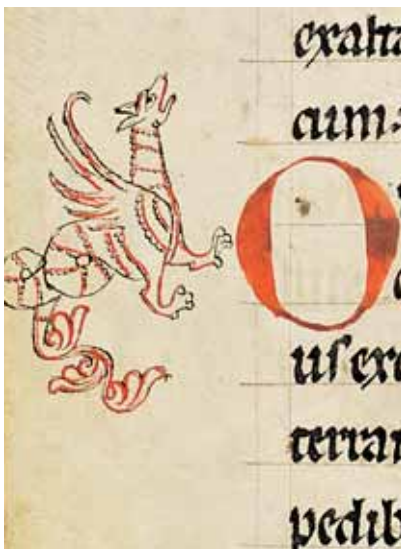 exalta
cum
O
us exa
terrar
pedib